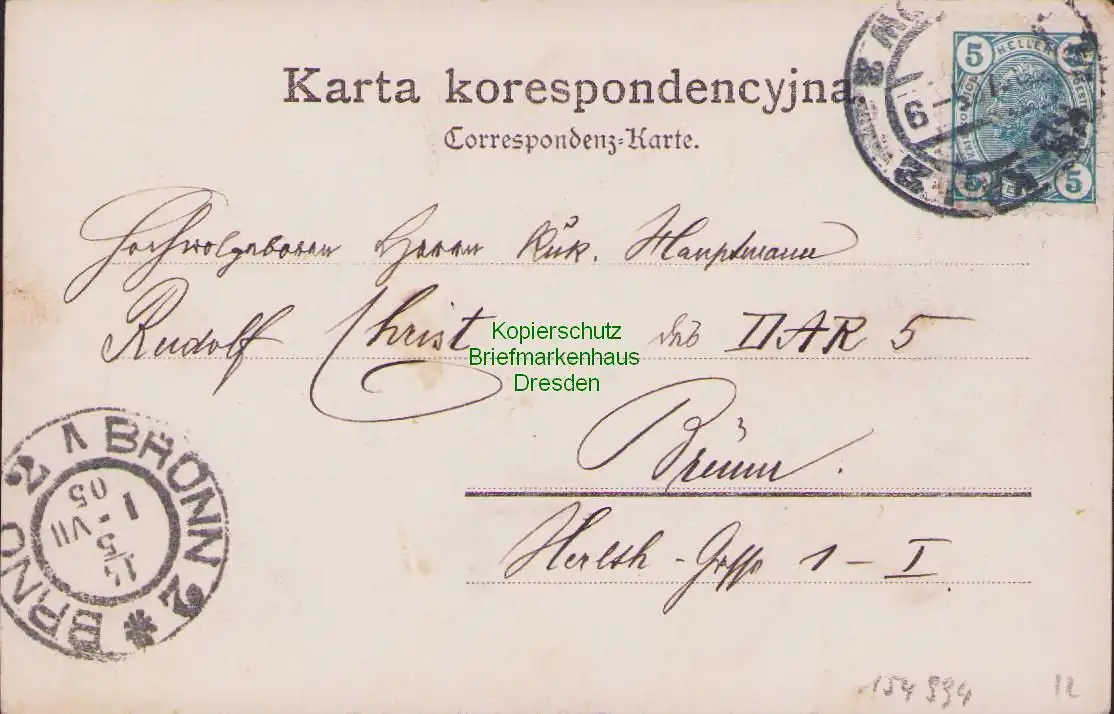 Karta korespondencyjna.
Correspondenz-Karte.
5 HELLER 5
5 5
Hochwolgeboren Herrn KuK. Hauptmann
Rudolf Christ des DAR 5
Kopierschutz
Briefmarkenhaus
Dresden
Brünn.
Gasse 1 - I
BRÜNN 2 * BRNO 2
15
5
VII 1
05
154994 12